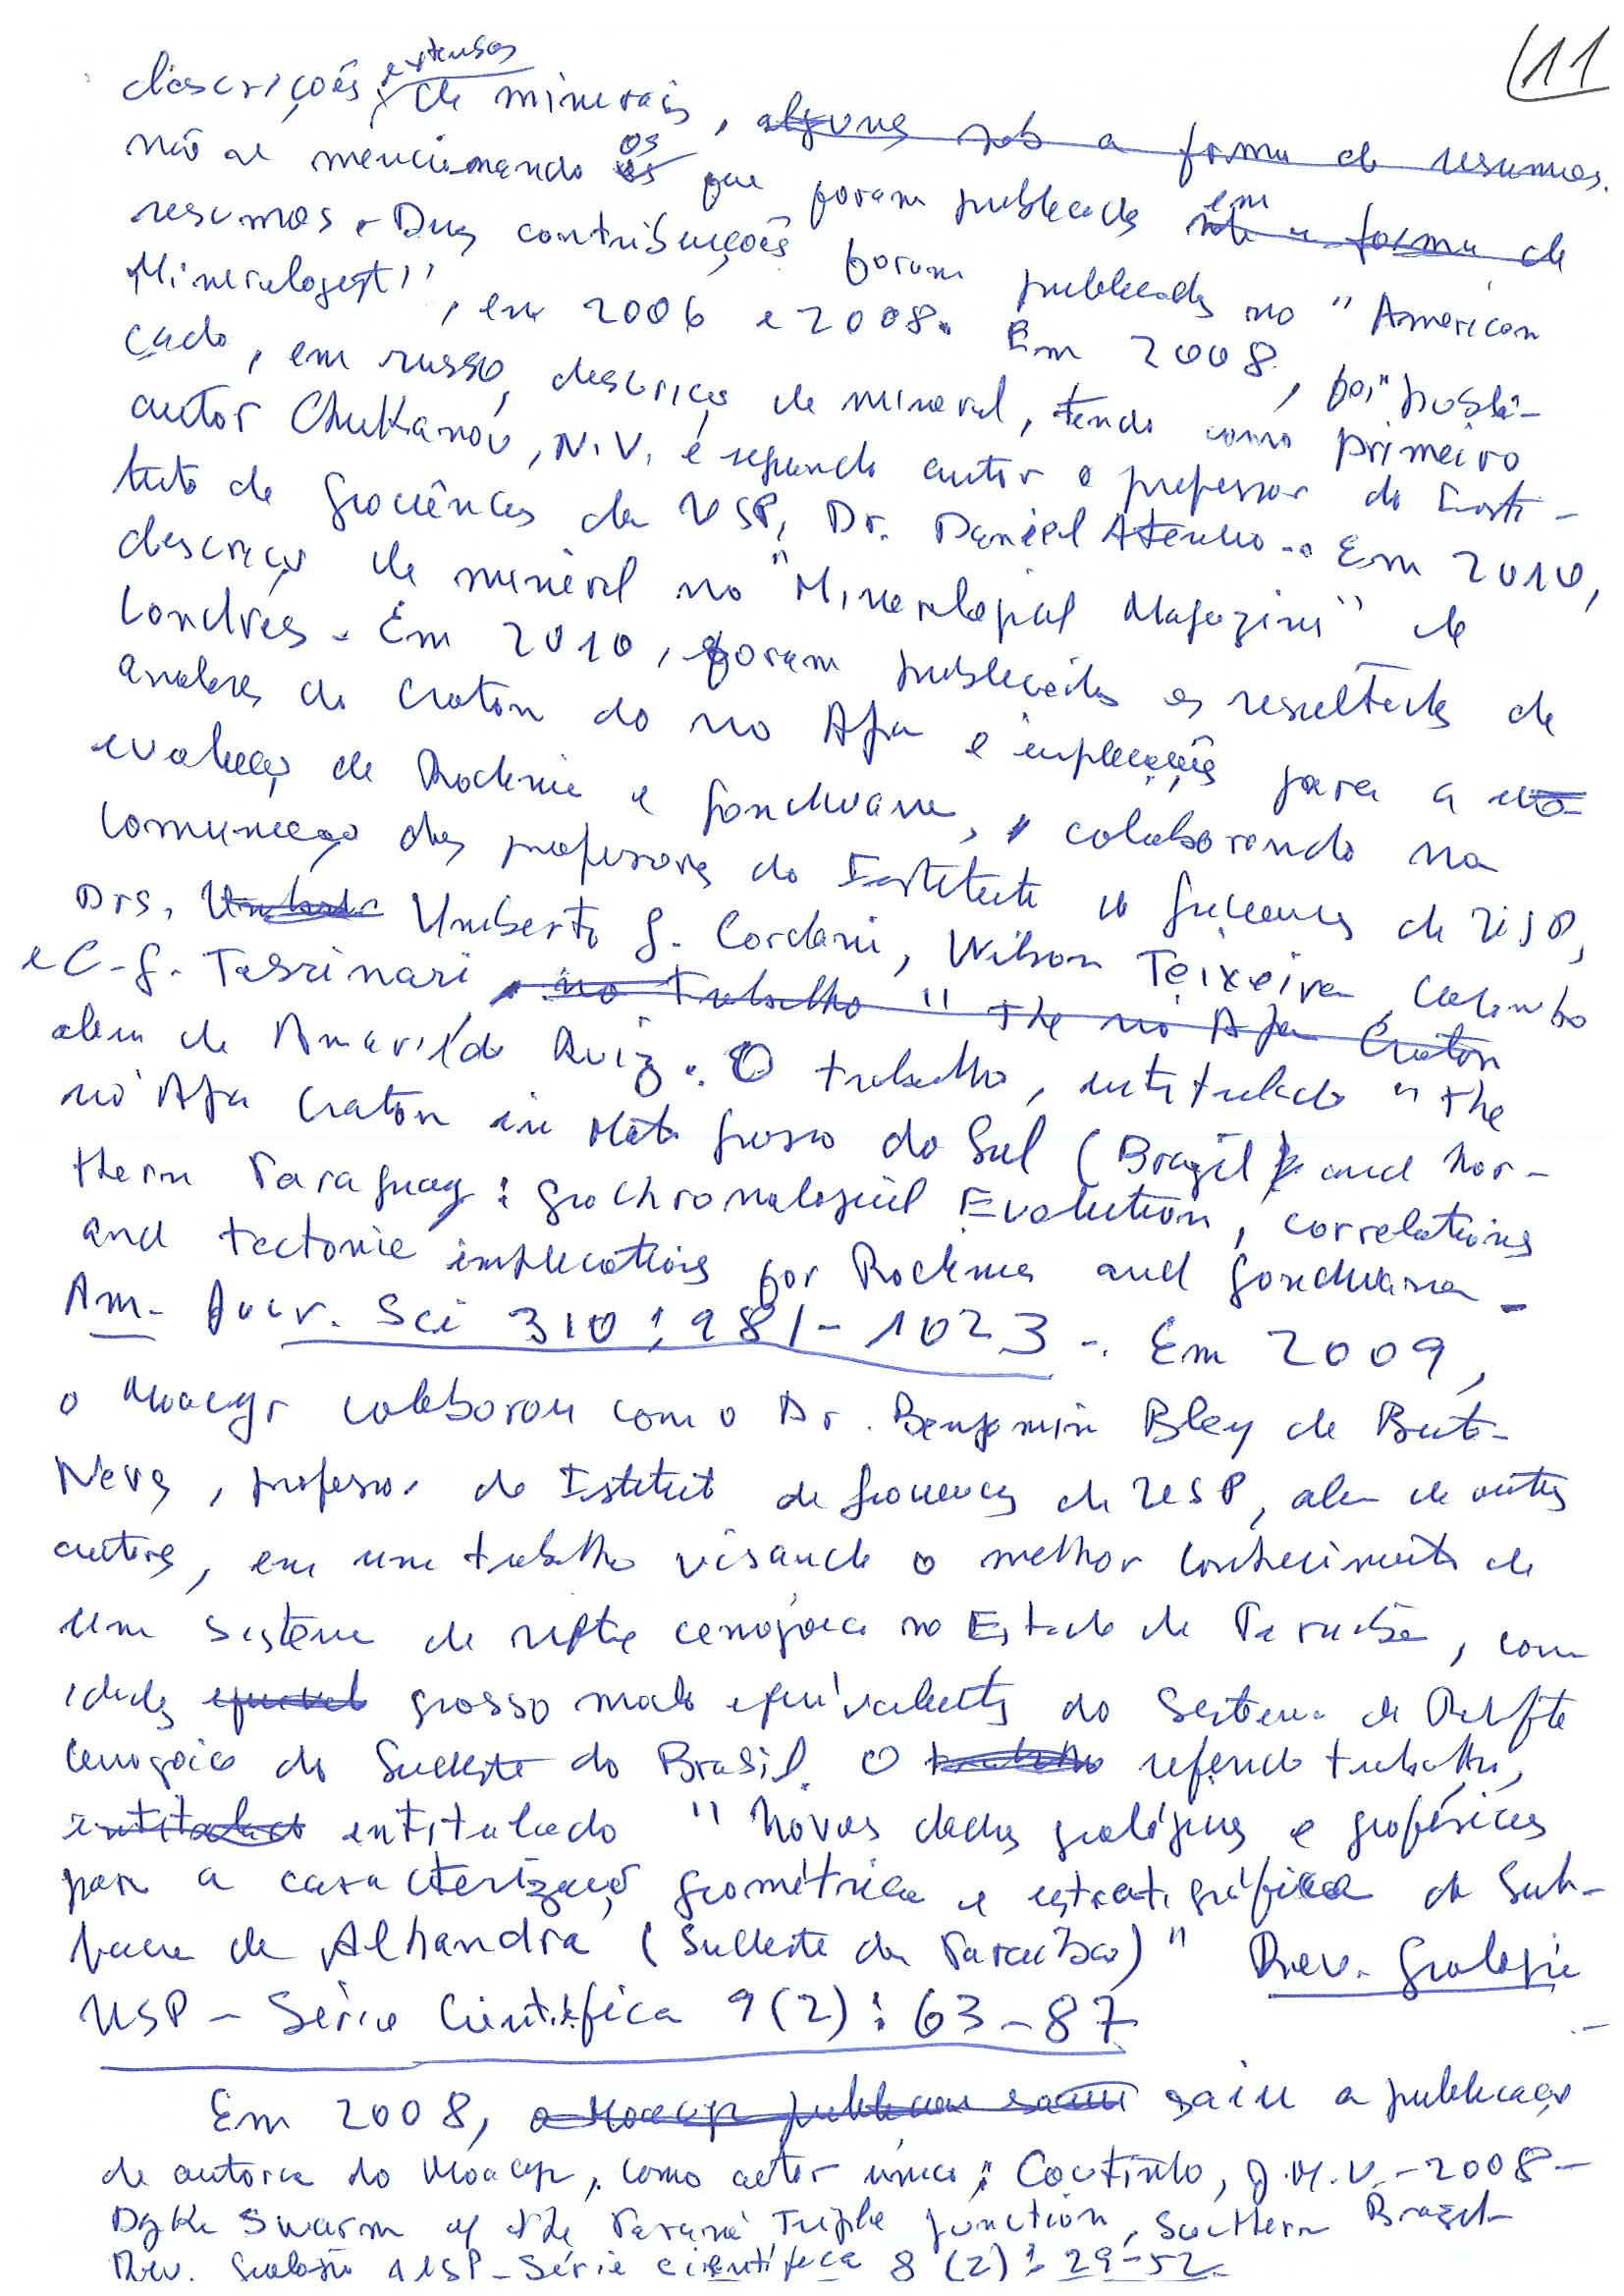 11
descrições extensas de minerais, alguns sob a forma de resumos.
não se mencionando os que foram publicados em sob a forma de
resumos. Duas contribuições foram publicadas no "American
Mineralogist", em 2006 e 2008. Em 2008, foi publi-
cado, em russo, descrição de mineral, tendo como primeiro
autor Chukanov, N.V. e segundo autor o professor do Insti-
tuto de Geociências da USP, Dr. Daniel Atencio. Em 2010,
descrição de mineral no "Mineralogical Magazine" de
Londres. Em 2010, foram publicados os resultados de
análises do Craton do rio Apa e implicações para a evo
evolução de Rodinia e Gondwana, colaborando na
comunicação dos professores do Instituto de Geociências da USP,
Drs. Umberto G. Cordani, Wilson Teixeira, Colombo
e C. G. Tassinari, no trabalho "The rio Apa Craton
alem de Amarildo Ruiz. O trabalho, intitulado "The
rio Apa Craton in Mato Grosso do Sul (Brazil) and Nor-
thern Paraguay: Geochronological Evolution, correlations
and tectonic implications for Rodinia and Gondwana -
Am. Jour. Sci 310: 981-1023 -. Em 2009,
o Moacyr colaborou com o Dr. Benjamin Bley de Brito
Neves, professor do Instituto de Geociencias da USP, alem de outros
autores, em um trabalho visando o melhor conhecimento de
um sistema de riftes cenozoico no Estado da Paraíba, com
idades equival grosso modo equivalentes do Sistema de Rifte
Cenozoico do Sudeste do Brasil. O trabalho referido trabalho,
intitulado entitulado "Novos dados geológicos e geofísicos
para a caracterização geométrica e estratigráfica da Sub-
bacia de Alhandra (Sudeste da Paraíba)" Rev. Geologia
USP - Série Científica 9(2): 63-87
Em 2008, o Moacyr publicou saiu a publicação
de autoria do Moacyr, como autor único; Coutinho, J.M.V. - 2008 -
Dyke Swarm of the Paraná Triple Junction, Southern Brazil -
Rev. Geologia USP - Série Científica 8 (2): 29-52.